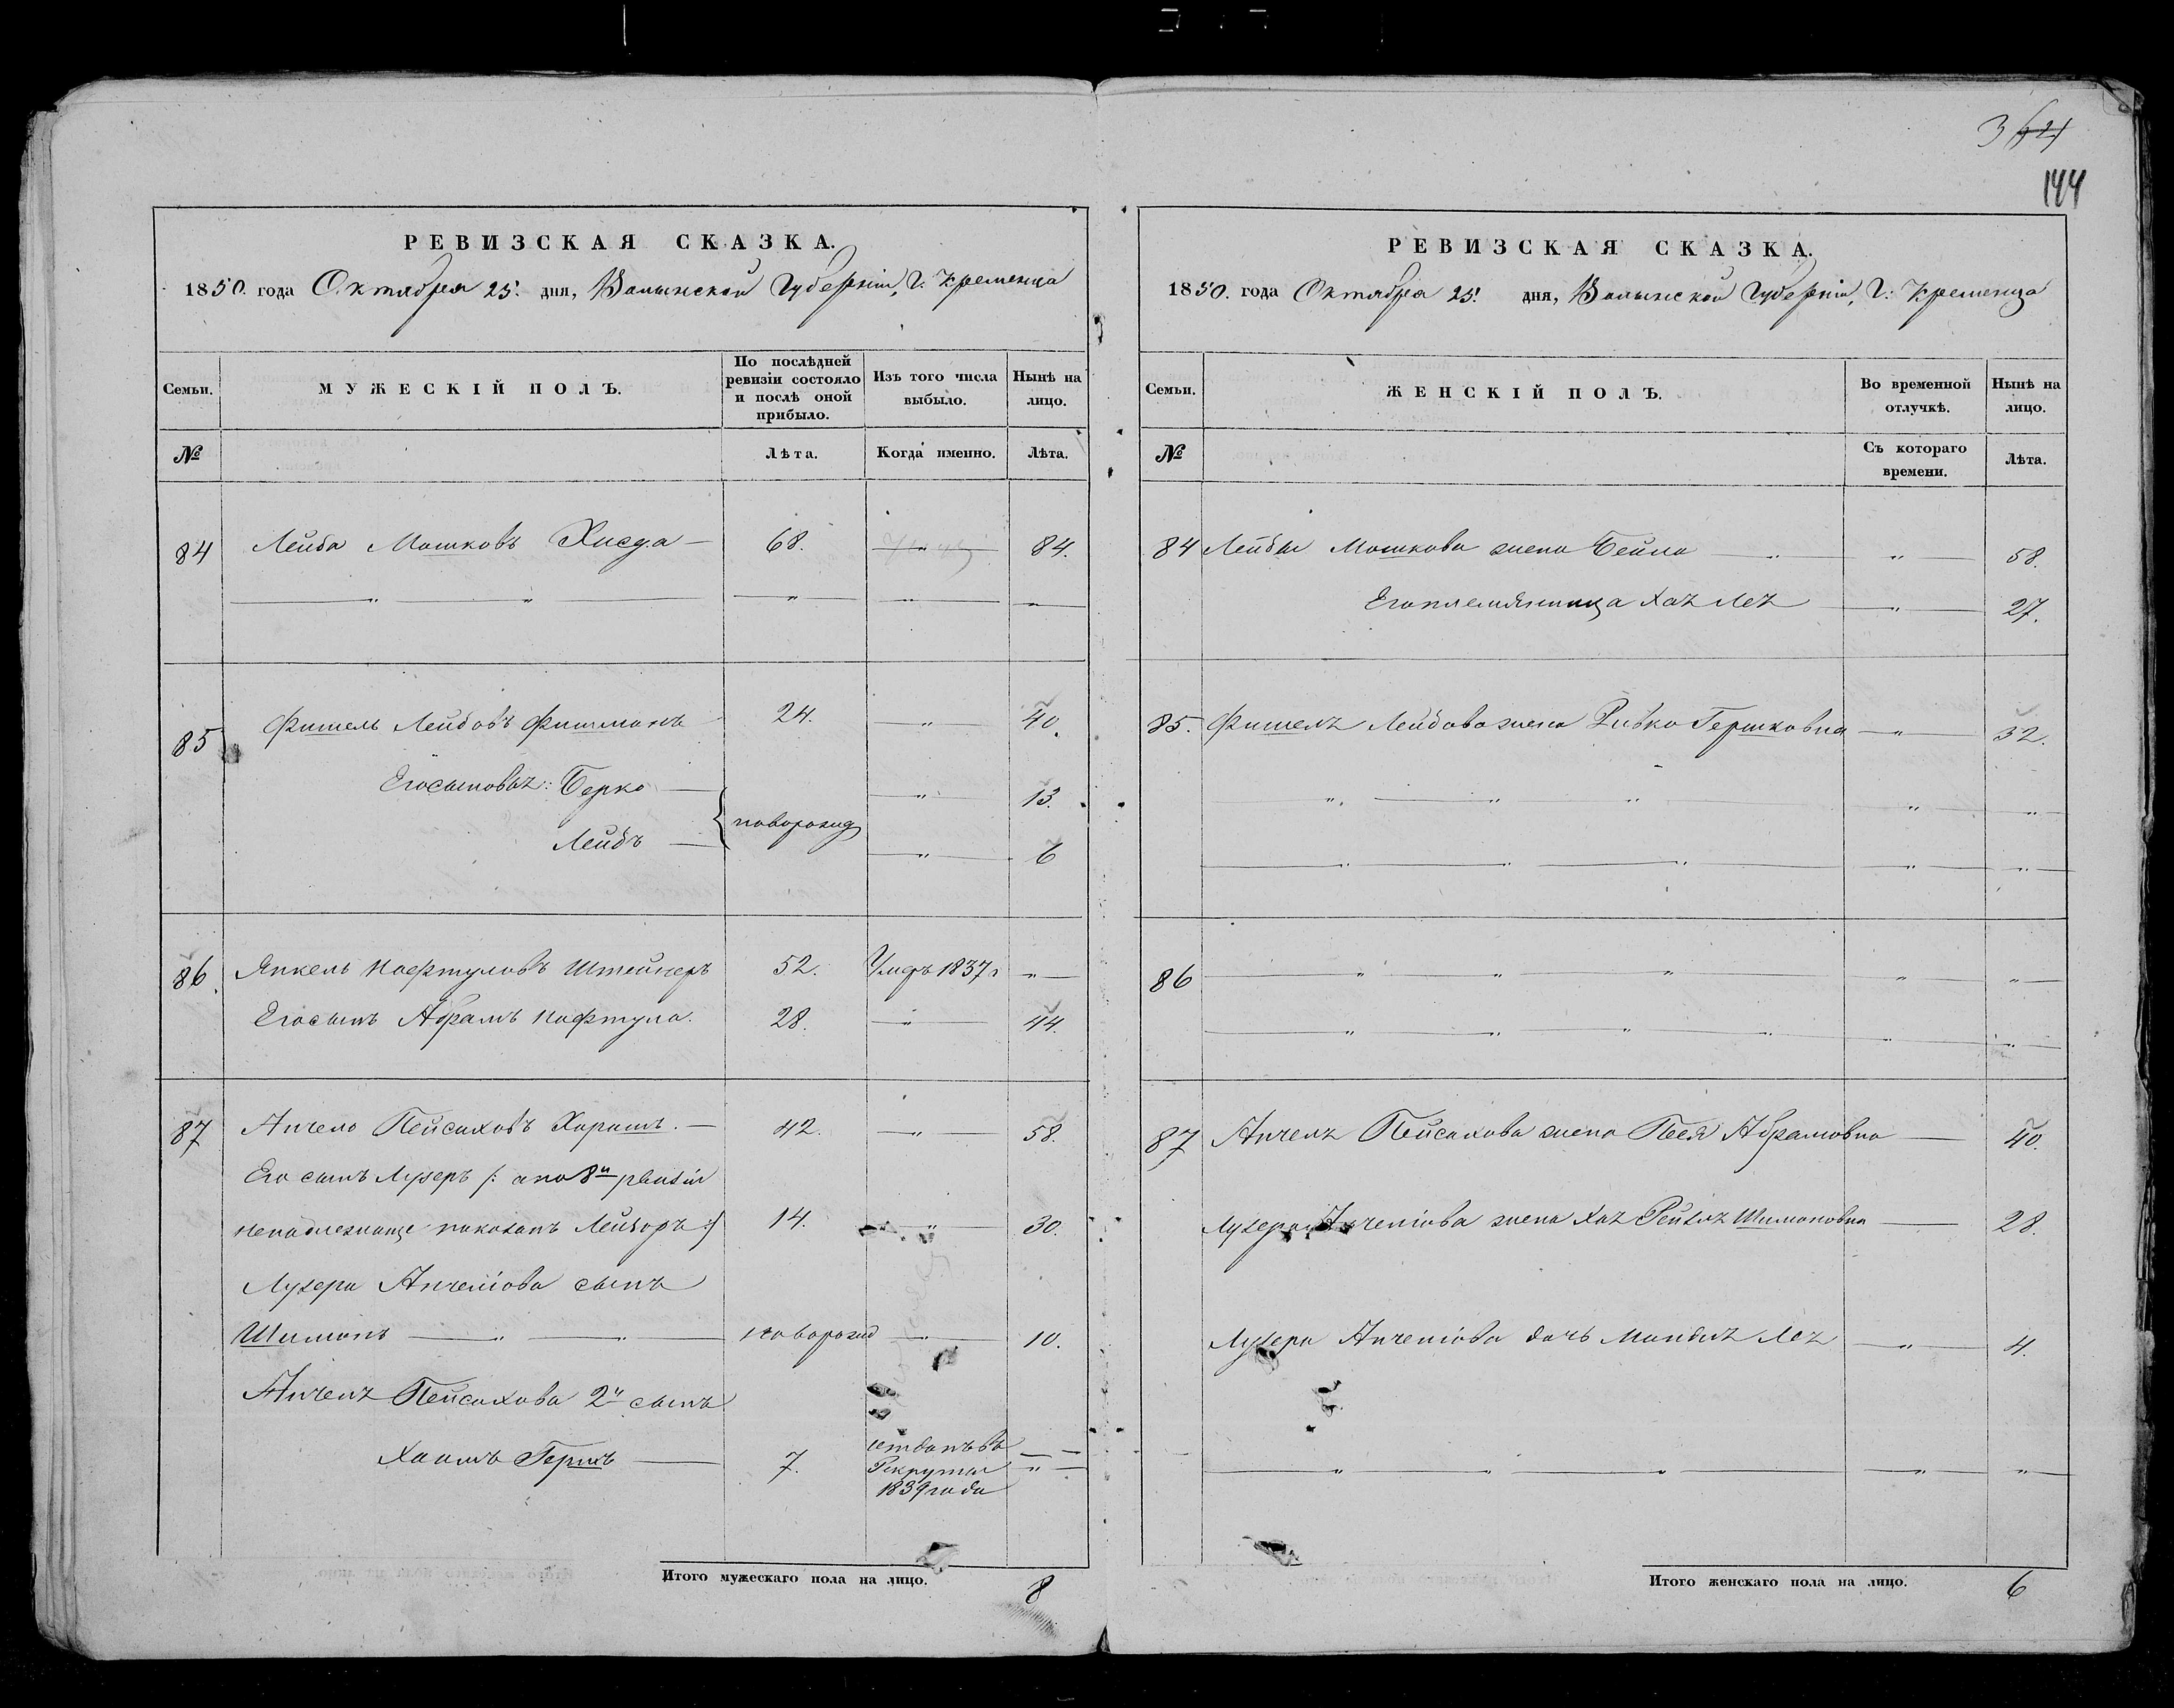 3
144
РЕВИЗСКАЯ СКАЗКА.
1850. года Октября 25. дня, Волынской Губерніи, Г. Кременца
Семьи. МУЖЕСКІЙ ПОЛЪ. По послѣдней ревизіи состояло и послѣ оной прибыло. Изъ того числа выбыло. Нынѣ на лицо.
№ Лѣта. Когда именно. Лѣта.
84 Лейба Мошковъ Хисда — 68. — „ — 84.
85 Фишель Лейбовъ Фишманъ 24. — „ — 40.
Его сыновья: Берко — новорожд — „ — 13.
Лейбъ — — „ — 6
86. Янкель Нафтуловъ Штейнеръ 52. Умръ 1837 г „ —
Его сынъ Абрамъ Нафтула. 28. — „ — 44.
87 Анчель Пейсаховъ Харашъ. — 42. — „ — 58.
Его сынъ Лузеръ /: а по 8й ревизіи
ненадлежаще показанъ Лейзоръ :/ 14. — „ — 30.
Лузера Анчелiова сынъ
Шимонъ — „ — „ — новорожд — „ — 10.
Анчеля Пейсахова 2й сынъ
Хаимъ Гершъ — 7. отданъ въ Рекруты 1839 года — „ —
Итого мужескаго пола на лицо. 8
РЕВИЗСКАЯ СКАЗКА.
1850. года Октября 25. дня, Волынской Губерніи, Г: Кременца
Семьи. ЖЕНСКІЙ ПОЛЪ. Во временной отлучкѣ. Нынѣ на лицо.
№ Съ котораго времени. Лѣта.
84 Лейбы Мошкова жена Бейла — „ — 58.
Его племянница Хая Лея — „ — 27.
85. Фишеля Лейбова жена Ривка Гершковна — „ — 32.
86 — „ — „ — „ — „ — „ —
87 Анчеля Пейсахова жена Песя Абрамовна — 40.
Лузера Анчелiова жена Хая Рейзля Шимоновна — 28.
Лузера Анчелiова дочь Мандля Лея — „ — 4.
Итого женскаго пола на лицо. 6